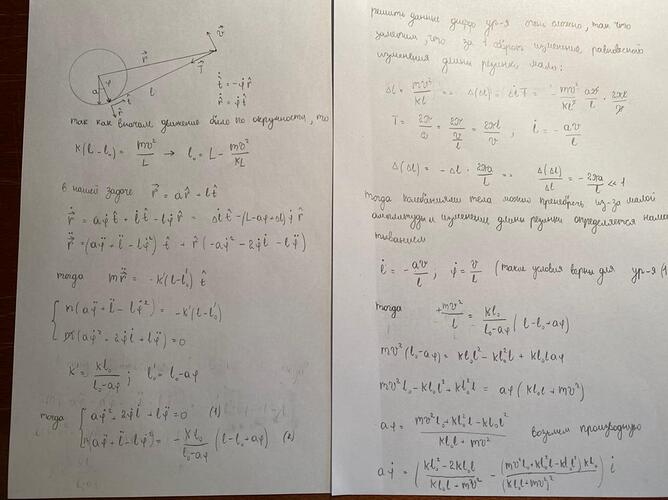 v⃗
r⃗
T⃗
a
φ
l
t̂
r̂
t̂̇ = -φ̇ r̂
r̂̇ = φ̇ t̂
так как вначале движение было по окружности, то
K(l-l₀) = mv²/L → l₀ = L - mv²/KL
в нашей задаче r⃗ = a r̂ + l t̂
m r⃗̈ = -K'(l-l₀') t̂
тогда
{ m(aφ̈ + l̈ - lφ̇²) = -K'(l-l₀')
K' = Kl₀/(l₀-aφ) ; l₀' = l₀-aφ
тогда { aφ̇² - 2φ̇l̇ + lφ̈ = 0 (1)
m(aφ̈ + l̈ - lφ̇²) = - Kl₀/(l₀-aφ) (l-l₀+aφ) (2)
решить данные дифф ур-я очень сложно, так что
заметим, что за 1 оборот изменение равновесного
изменения длины резинки мало:
T = 2π/ω = 2π/(v/l) = 2πl/v ; l̇ = - av/l
Δ(Δl) = - Δl · 2πa/l ⇒ Δ(Δl)/Δl = - 2πa/l ≪ 1
тогда колебаниями тела можно пренебречь из-за малой
амплитуды и изменение длины резинки определяется нама-
тыванием
l̇ = - av/l ; φ̇ = v/l (такие условия верны для ур-я (1)
тогда + mv²/l = kl₀/(l₀-aφ) (l-l₀+aφ)
mv²(l₀-aφ) = kl₀l² - kl₀²l + kl₀laφ
mv²l₀ - kl₀l² + kl₀²l = aφ(kl₀l + mv²)
aφ = (mv²l₀ + kl₀²l - kl₀l²)/(kl₀l + mv²) возьмем производную
aφ̇ = ( (kl₀² - 2kl₀l)/(kl₀l + mv²) - (mv²l₀ + kl₀²l - kl₀l²)kl₀/(kl₀l + mv²)² ) l̇